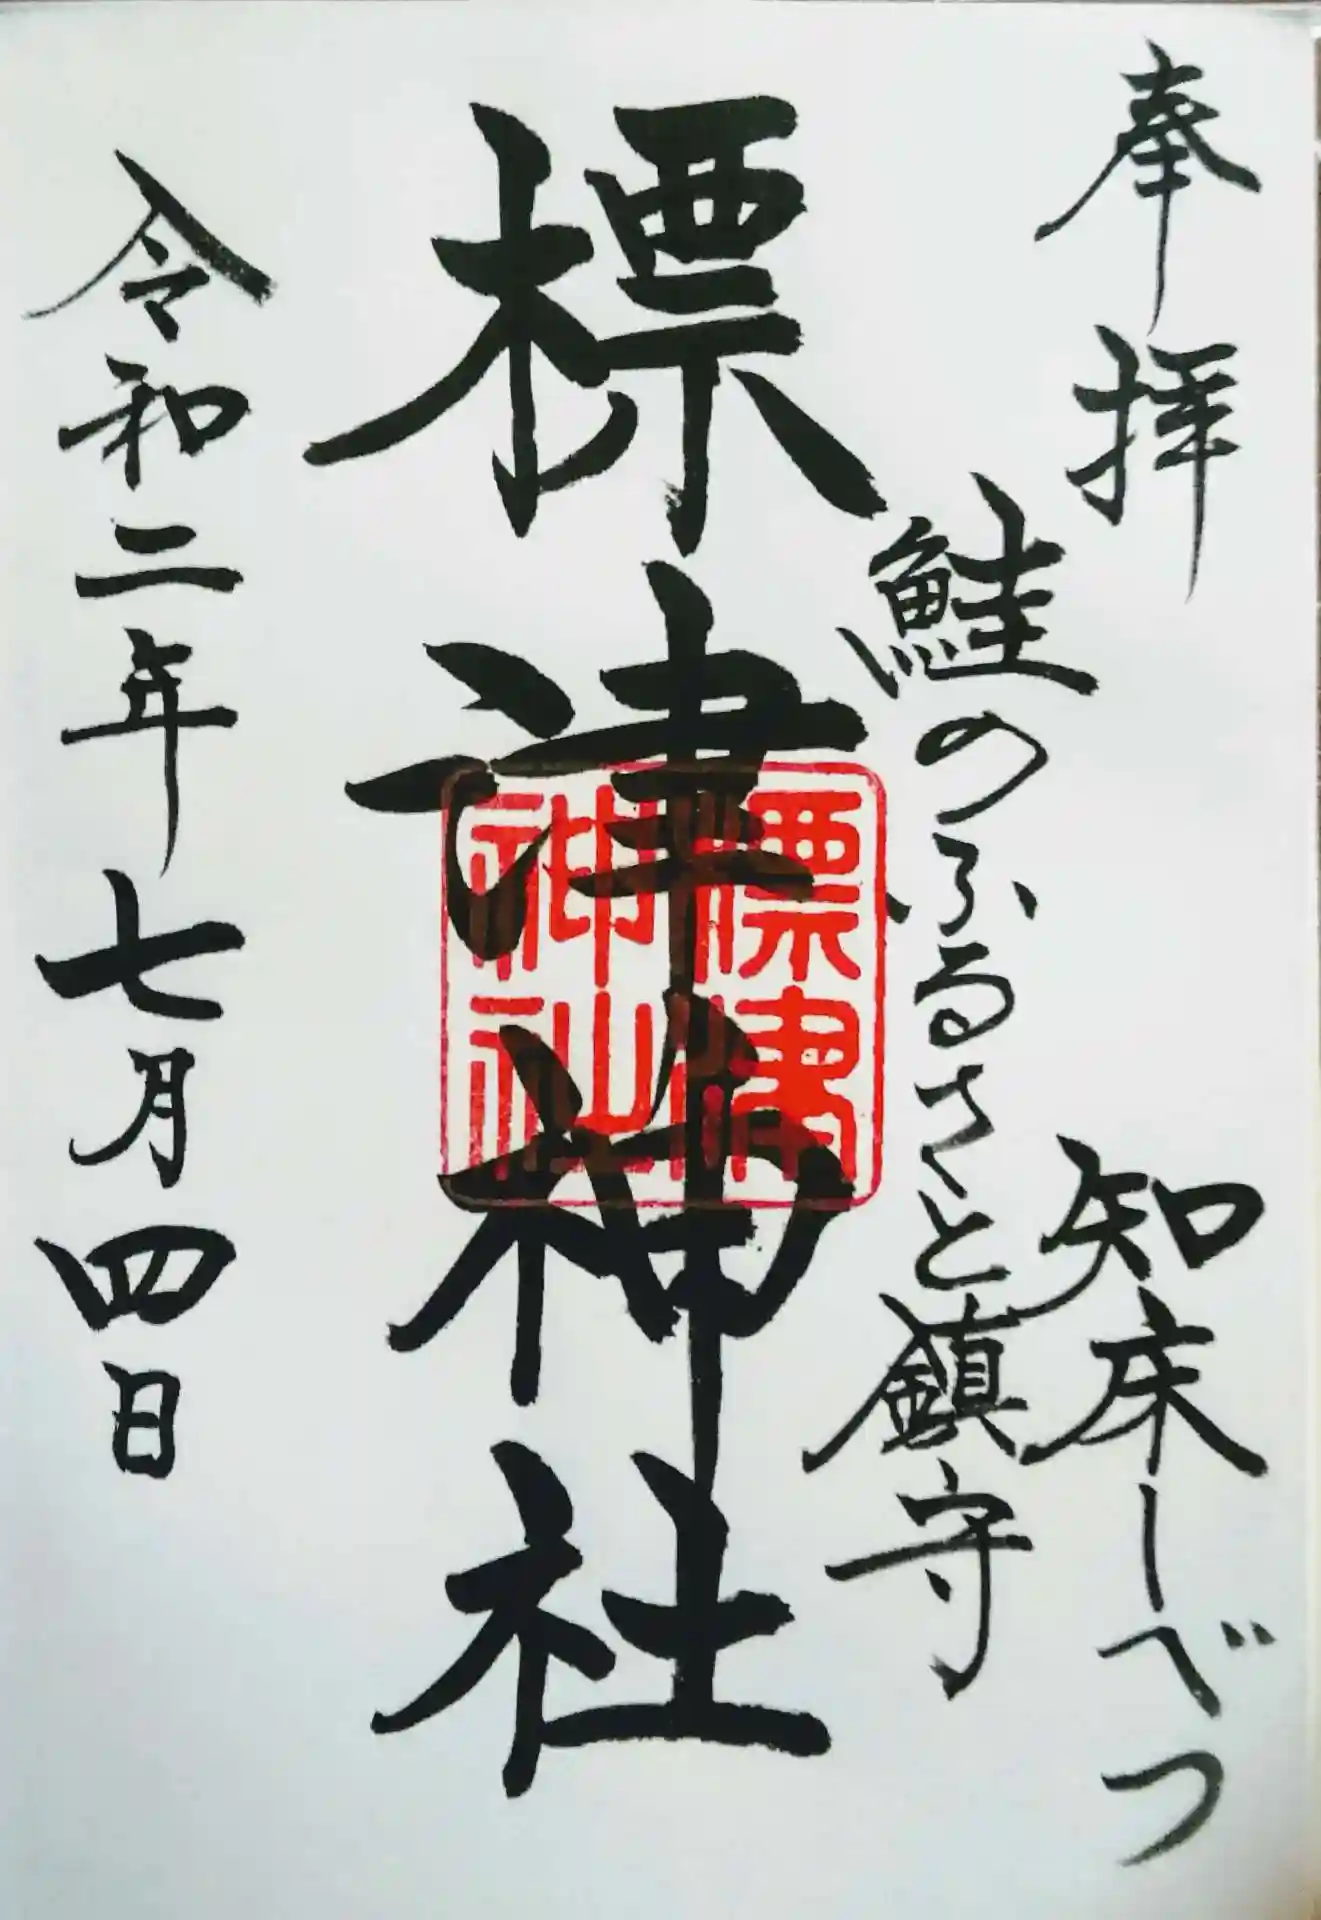 奉拝
知床しべつ
鮭のふるさと鎮守
標津神社
標津
神社
令和二年七月四日